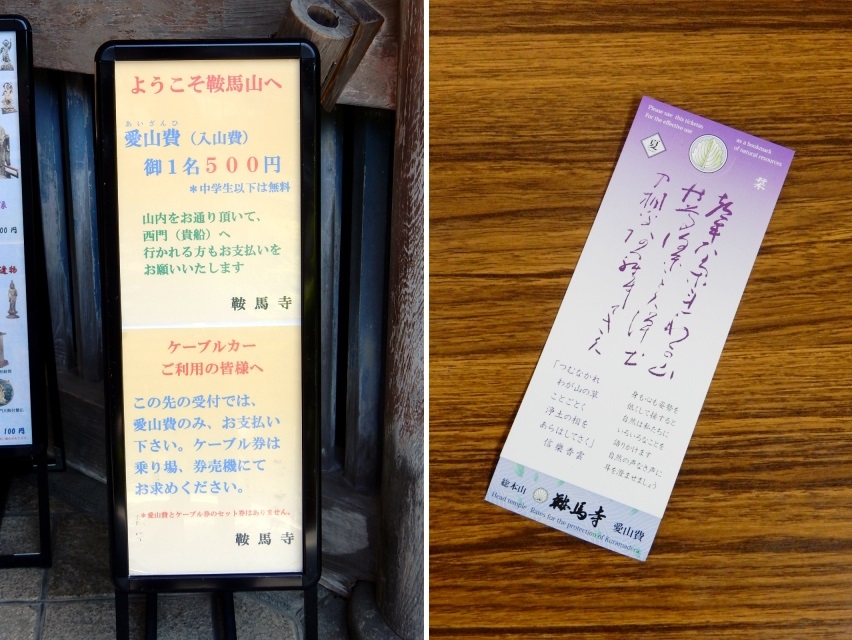 ようこそ鞍馬山へ
あいざんひ
愛山費（入山費）
御１名５００円
＊中学生以下は無料
山内をお通り頂いて、
西門（貴船）へ
行かれる方もお支払いを
お願いいたします
鞍馬寺
ケーブルカー
ご利用の皆様へ
この先の受付では、
愛山費のみ、お支払い
下さい。ケーブル券は
乗り場、券売機にて
お求めください。
＊愛山費とケーブル券のセット券はありません。
鞍馬寺
建物
００円
１００円
Please use this tickets
For the effective use
as a bookmark
of natural resources
夏
栞
「つむなかれ
わが山の草
ことごとく
浄土の相を
あらはしてさく」
信樂香雲
身も心も姿勢を
低くして接すると
自然は私たちに
いろいろなことを
語りかけます
自然の声なき声に
耳を澄ませましょう
総本山
鞍馬寺
愛山費
Head temple
Rates for the protection of Kuramadera